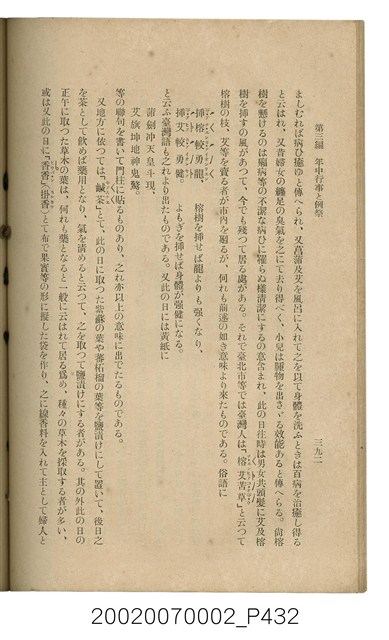 第三編　年中行事と例祭
三九二
ましむれば病ひ癒ゆと傳へられ、又菖蒲及艾を風呂に入れて之を以て身體を洗ふときは百病を治癒し得る
と云はれ、又者婦女の纏足の臭氣を之にて去り得べく、小兒は腫物を出さゞる效能あると傳へらる。尚榕
樹を懸けるのは瘟病等の不潔な病ひに罹らぬ樣清潔にするの意含まれ、此の日往時は男女共頭髮に艾及榕
樹を挿すの風があつて、今でも殘つて居る處がある。それで臺北市等では臺灣人は「榕艾苦草」と云つて
榕樹の枝、艾等を賣る者が市内を廻るが、何れも前述の如き意味より來たものである。俗語に
挿榕較勇龍、　榕樹を挿せば龍よりも強くなり、
挿艾較勇健。　よもぎを挿せば身體が強健になる。
と云ふ臺灣語も之れより出たものである。又此の日には黃紙に
蒲劍冲天皇斗現、
艾旗坤地神鬼驚。
等の聯句を書いて門柱に貼るものあり、之れ亦以上の意味に出でたるものである。
又地方に依つては「鹹茶」とて、此の日に取つた紫蘇の葉や蕃柘榴の葉等を鹽漬けにして置いて、後日之
を茶として飲めば藥用となり、氣を清めると云つて、之を取つて鹽漬けにする者がある。其の外此の日の
正午に取つた草木の葉は、何れも藥となると一般に云はれて居る爲め、種々の草木を採取する者が多い、
或は又此の日に「香香」（掛香）とて布で果實等の形に擬した袋を作り、之に線香料を入れて主として婦人と
20020070002_P432